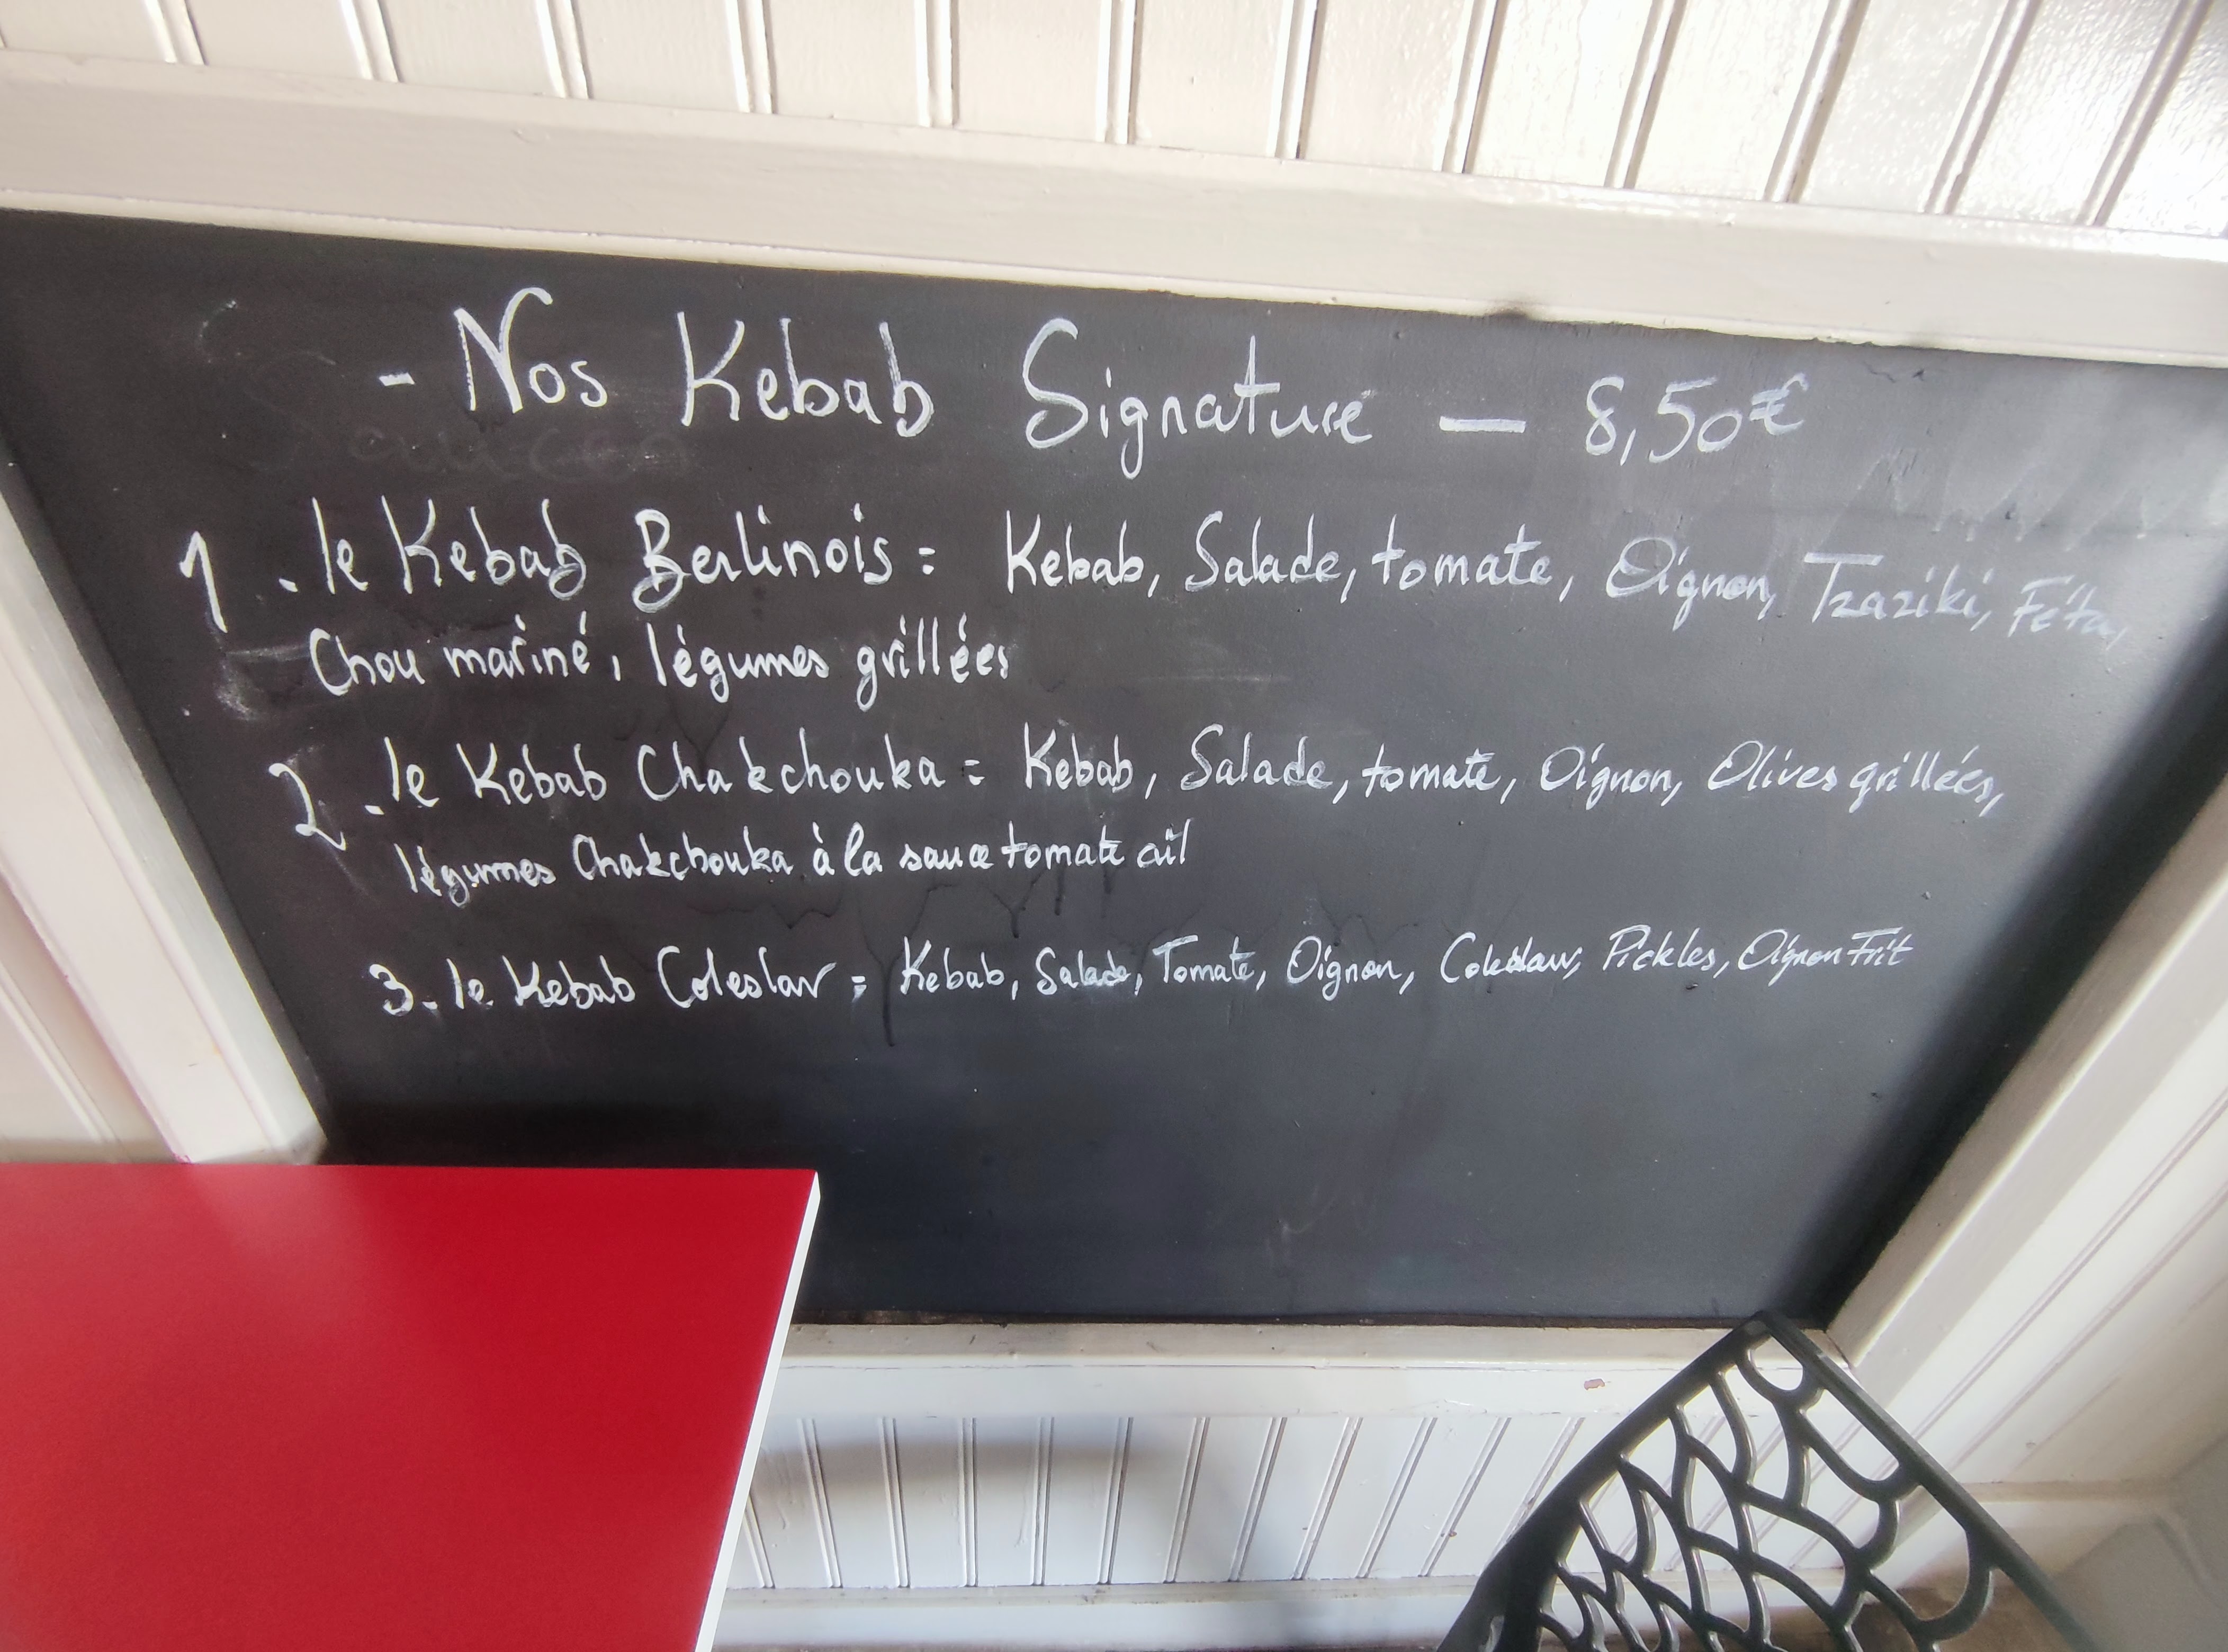 - Nos Kebab Signature — 8,50€
1. le Kebab Berlinois = Kebab, Salade, tomate, Oignon, Tzaziki, Féta,
Chou mariné, légumes grillées
2. le Kebab Chakchouka = Kebab, Salade, tomate, Oignon, Olives grillées,
légumes Chakchouka à la sauce tomate ail
3. le Kebab Coleslaw = Kebab, Salade, Tomate, Oignon, Coleslaw, Pickles, Oignon Frit